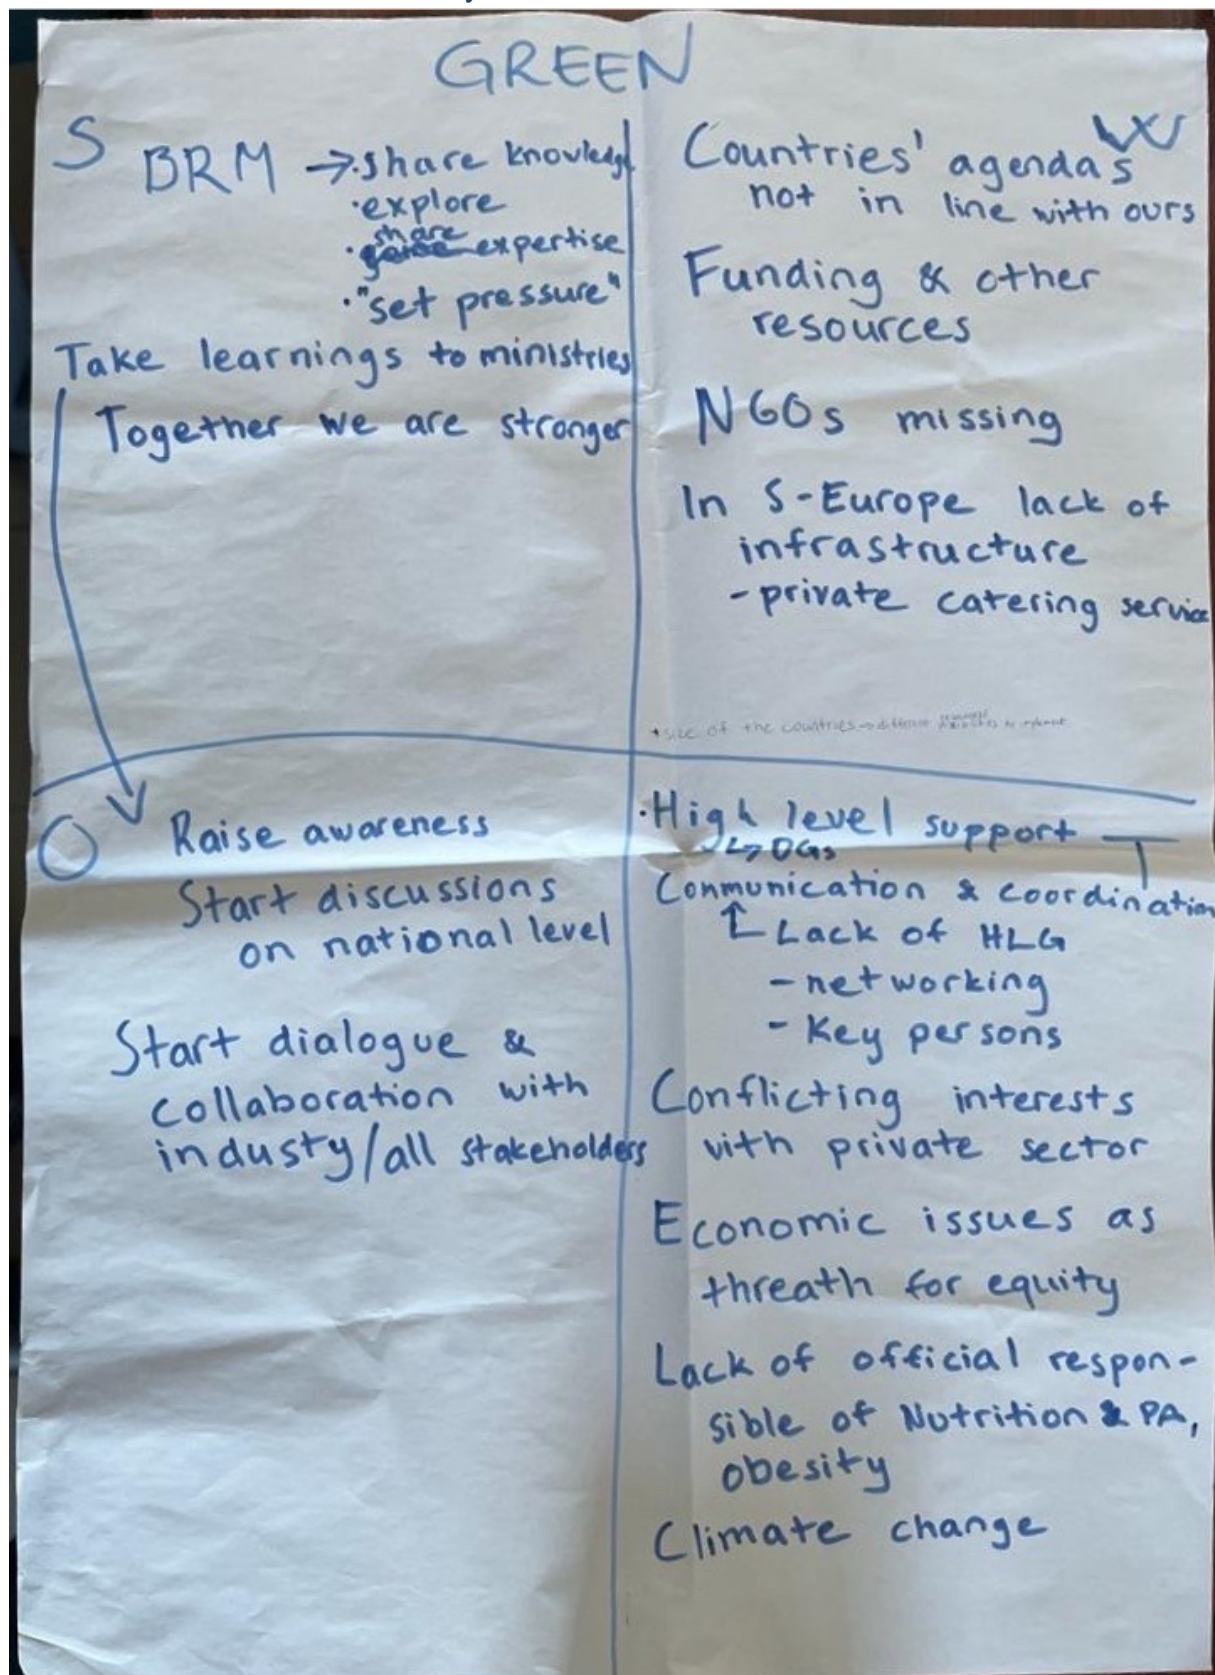 GREEN
S
BRM → · share knowledg
· explore
share
· expertise
· "set pressure"
Take learnings to ministries
Together we are stronger
W
Countries' agendas
not in line with ours
Funding & other
resources
NGOs missing
In S-Europe lack of
infrastructure
- private catering service
* size of the countries → different
O
Raise awareness
Start discussions
on national level
Start dialogue &
collaboration with
industy/all stakeholders
T
· High level support
↳ DGs
Communication & coordination
↑ Lack of HLG
- networking
- Key persons
Conflicting interests
with private sector
Economic issues as
threath for equity
Lack of official respon-
sible of Nutrition & PA,
obesity
Climate change